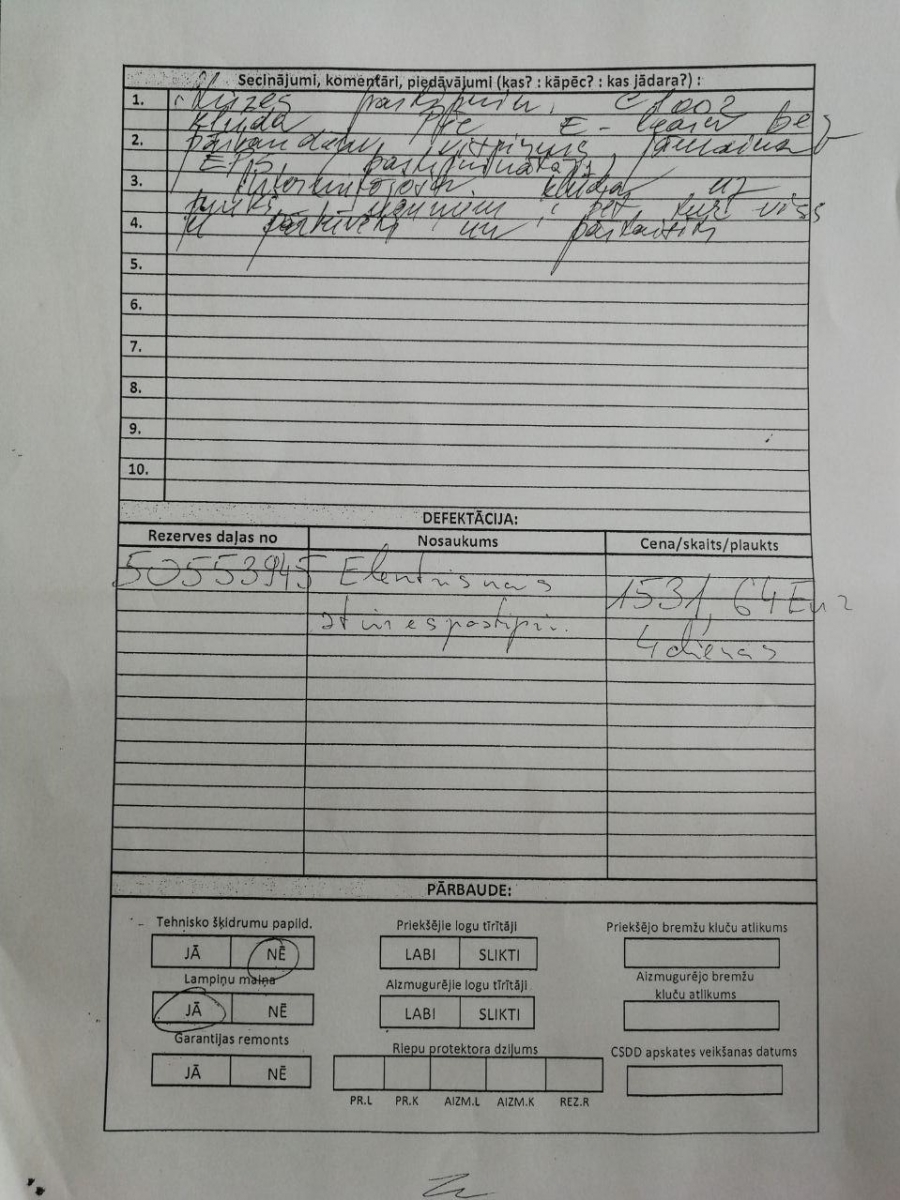 Secinājumi, komentāri, piedāvājumi (kas? : kāpēc? : kas jādara?) :
1. pastiprin. C1002
kļūda Pēc E- bez
2. jāmaina
EPS, pastiprinātājs
3. kļūda uz
viss
4. ir un
5.
6.
7.
8.
9.
10.
DEFEKTĀCIJA:
Rezerves daļas no Nosaukums Cena/skaits/plaukts
50553945 Elektriskais 1531,64 Eur
stūres pastipri. 4 dienas
PĀRBAUDE:
Tehnisko šķidrumu papild. Priekšējie logu tīrītāji Priekšējo bremžu kluču atlikums
JĀ NĒ LABI SLIKTI
Lampiņu maiņa Aizmugurējie logu tīrītāji Aizmugurējo bremžu
kluču atlikums
JĀ NĒ LABI SLIKTI
Garantijas remonts Riepu protektora dziļums CSDD apskates veikšanas datums
JĀ NĒ
PR.L PR.K AIZM.L AIZM.K REZ.R